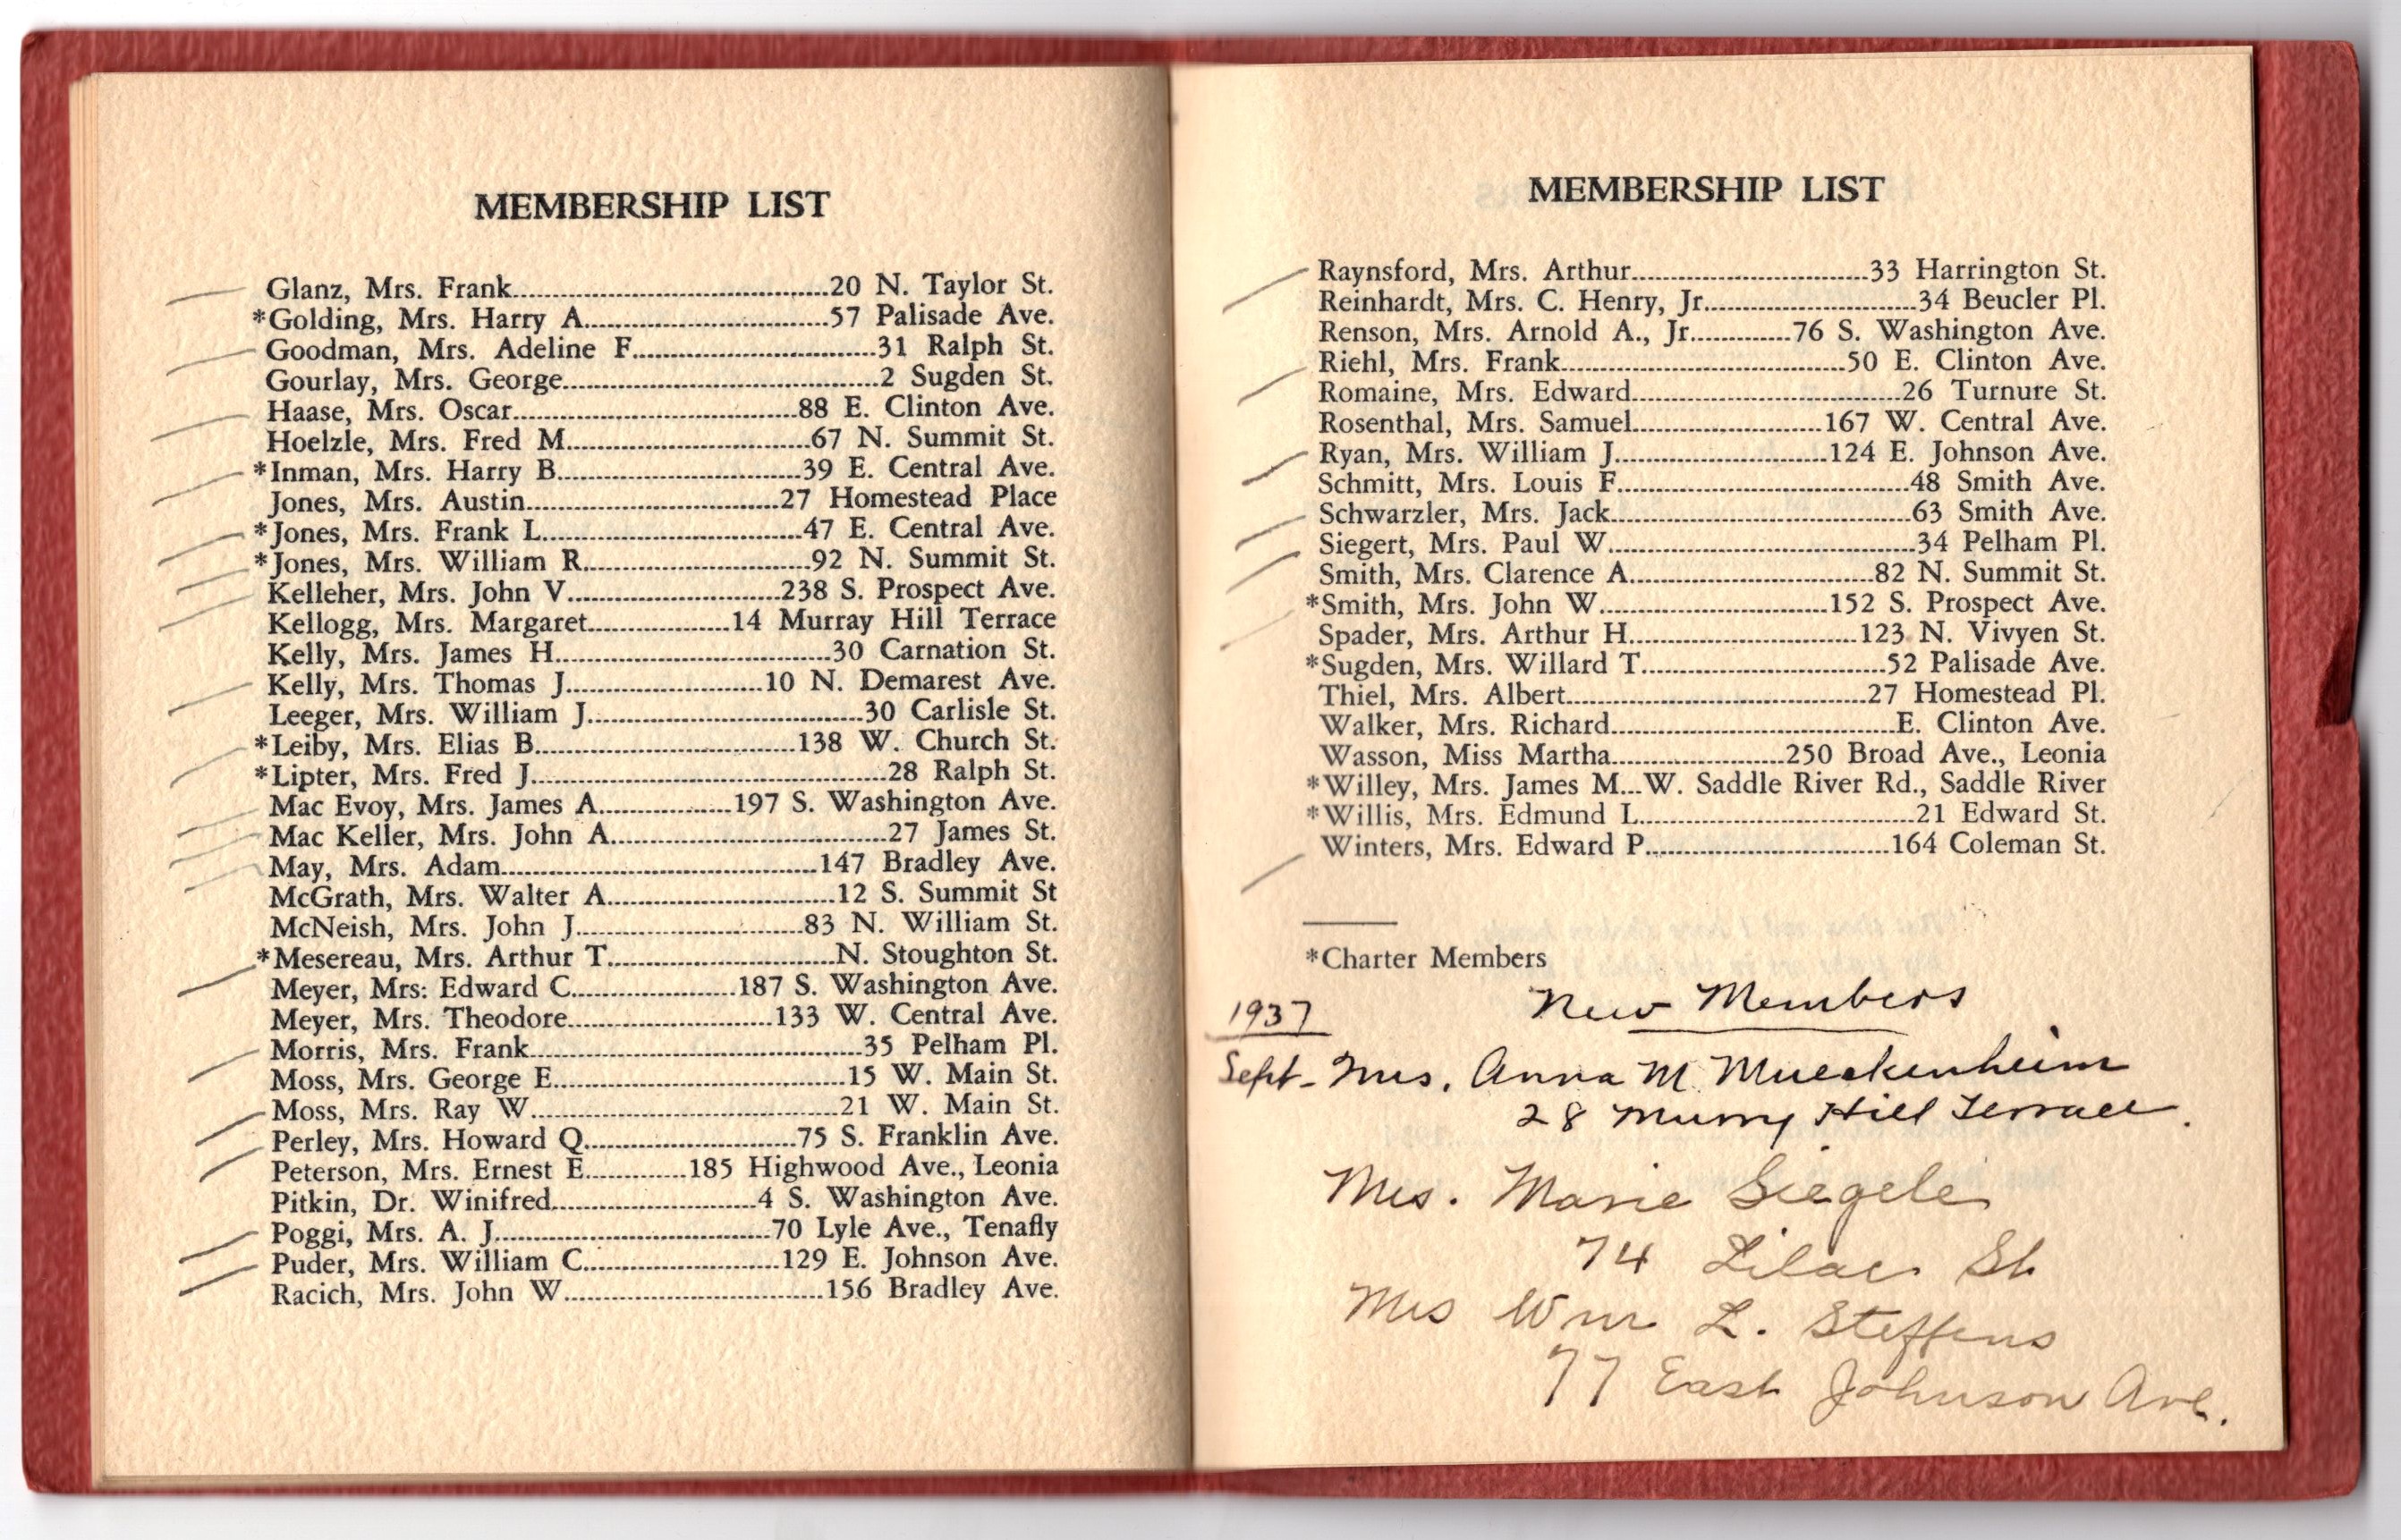 MEMBERSHIP LIST
Glanz, Mrs. Frank........................................20 N. Taylor St.
*Golding, Mrs. Harry A...............................57 Palisade Ave.
Goodman, Mrs. Adeline F...............................31 Ralph St.
Gourlay, Mrs. George........................................2 Sugden St.
Haase, Mrs. Oscar....................................88 E. Clinton Ave.
Hoelzle, Mrs. Fred M...............................67 N. Summit St.
*Inman, Mrs. Harry B...............................39 E. Central Ave.
Jones, Mrs. Austin................................27 Homestead Place
*Jones, Mrs. Frank L.................................47 E. Central Ave.
*Jones, Mrs. William R.............................92 N. Summit St.
Kelleher, Mrs. John V...........................238 S. Prospect Ave.
Kellogg, Mrs. Margaret..................14 Murray Hill Terrace
Kelly, Mrs. James H...................................30 Carnation St.
Kelly, Mrs. Thomas J.........................10 N. Demarest Ave.
Leeger, Mrs. William J...................................30 Carlisle St.
*Leiby, Mrs. Elias B.................................138 W. Church St.
*Lipter, Mrs. Fred J.............................................28 Ralph St.
Mac Evoy, Mrs. James A.................197 S. Washington Ave.
Mac Keller, Mrs. John A...................................27 James St.
May, Mrs. Adam........................................147 Bradley Ave.
McGrath, Mrs. Walter A.............................12 S. Summit St
McNeish, Mrs. John J.............................83 N. William St.
*Mesereau, Mrs. Arthur T.............................N. Stoughton St.
Meyer, Mrs: Edward C.....................187 S. Washington Ave.
Meyer, Mrs. Theodore..........................133 W. Central Ave.
Morris, Mrs. Frank..........................................35 Pelham Pl.
Moss, Mrs. George E.....................................15 W. Main St.
Moss, Mrs. Ray W.......................................21 W. Main St.
Perley, Mrs. Howard Q...........................75 S. Franklin Ave.
Peterson, Mrs. Ernest E............185 Highwood Ave., Leonia
Pitkin, Dr. Winifred..........................4 S. Washington Ave.
Poggi, Mrs. A. J...................................70 Lyle Ave., Tenafly
Puder, Mrs. William C.........................129 E. Johnson Ave.
Racich, Mrs. John W.................................156 Bradley Ave.
MEMBERSHIP LIST
Raynsford, Mrs. Arthur..............................33 Harrington St.
Reinhardt, Mrs. C. Henry, Jr...........................34 Beucler Pl.
Renson, Mrs. Arnold A., Jr.............76 S. Washington Ave.
Riehl, Mrs. Frank....................................50 E. Clinton Ave.
Romaine, Mrs. Edward..................................26 Turnure St.
Rosenthal, Mrs. Samuel........................167 W. Central Ave.
Ryan, Mrs. William J...........................124 E. Johnson Ave.
Schmitt, Mrs. Louis F.....................................48 Smith Ave.
Schwarzler, Mrs. Jack......................................63 Smith Ave.
Siegert, Mrs. Paul W.......................................34 Pelham Pl.
Smith, Mrs. Clarence A...............................82 N. Summit St.
*Smith, Mrs. John W.............................152 S. Prospect Ave.
Spader, Mrs. Arthur H.............................123 N. Vivyen St.
*Sugden, Mrs. Willard T...............................52 Palisade Ave.
Thiel, Mrs. Albert......................................27 Homestead Pl.
Walker, Mrs. Richard....................................E. Clinton Ave.
Wasson, Miss Martha......................250 Broad Ave., Leonia
*Willey, Mrs. James M...W. Saddle River Rd., Saddle River
*Willis, Mrs. Edmund L...................................21 Edward St.
Winters, Mrs. Edward P...............................164 Coleman St.
*Charter Members
New Members
1937
Sept- Mrs. Anna M Mueckenheim
28 Murry Hill Terrace.
Mrs. Marie Siegele
74 Lilac St
Mrs Wm L. Steffens
77 East Johnson Ave.